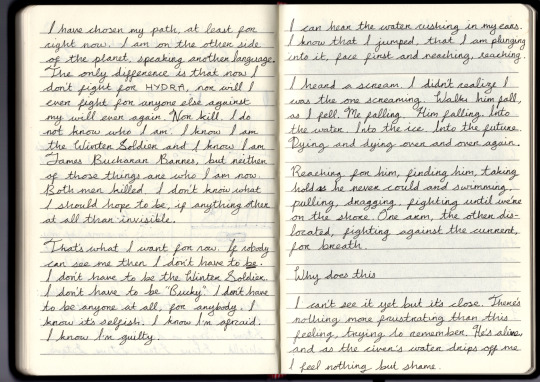 I have chosen my path, at least for
right now. I am on the other side
of the planet, speaking another language.
The only difference is that now I
don't fight for HYDRA, nor will I
ever fight for anyone else against
my will ever again. Nor kill. I do
not know who I am. I know I am
the Winter Soldier and I know I am
James Buchanan Barnes, but neither
of those things are who I am now.
Both men killed. I don't know what
I should hope to be, if anything other
at all than invisible.
That's what I want for now. If nobody
can see me then I don't have to be.
I don't have to be the Winter Soldier.
I don't have to be "Bucky" I don't have
to be anyone at all, for anybody. I
know it's selfish. I know I'm afraid.
I know I'm guilty.
I can hear the water rushing in my ears.
I know that I jumped, that I am plunging
into it, face first and reaching, reaching.
I heard a scream. I didn't realize I
was the one screaming. Watch him fall,
as I fell. Me falling. Him falling. Into
the water. Into the ice. Into the future.
Dying and dying over and over again.
Reaching for him, finding him, taking
hold as he never could and swimming,
pulling, dragging, fighting until we're
on the shore. One arm, the other dis-
located, fighting against the current,
for breath.
Why does this
I can't see it yet but it's close. There's
nothing more frustrating than this
feeling, trying to remember. He's alive,
and as the river's water drips off me
I feel nothing but shame.